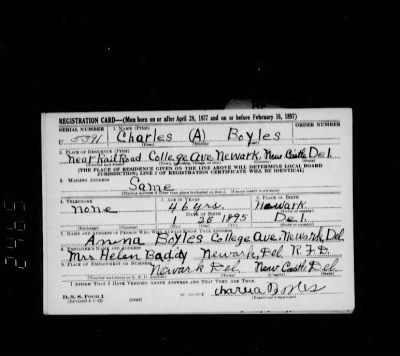 REGISTRATION CARD—(Men born on or after April 28, 1877 and on or before February 16, 1897)
SERIAL NUMBER
1. NAME (Print)
ORDER NUMBER
U
Charles (A) Boyles
2. PLACE OF RESIDENCE (Print)
Near Rail Road College Ave Newark, New Castle Del.
[THE PLACE OF RESIDENCE GIVEN ON THE LINE ABOVE WILL DETERMINE LOCAL BOARD
JURISDICTION; LINE 2 OF REGISTRATION CERTIFICATE WILL BE IDENTICAL]
3. MAILING ADDRESS
Same
4. TELEPHONE
5. AGE IN YEARS
6. PLACE OF BIRTH
none
46 yrs.
Newark
DATE OF BIRTH
28 1895
Del.
7. NAME AND ADDRESS OF PERSON WHO WILL ALWAYS KNOW YOUR ADDRESS
Anna Boyles College Ave. Newark, Del.
8. EMPLOYER'S NAME AND ADDRESS
Mrs Helen Baddy Newark, Del. R.F.D.
9. PLACE OF EMPLOYMENT OR BUSINESS
Newark Del. New Castle Del.
I AFFIRM THAT I HAVE VERIFIED ABOVE ANSWERS AND THAT THEY ARE TRUE.
D. S. S. Form 1
(over)
2465